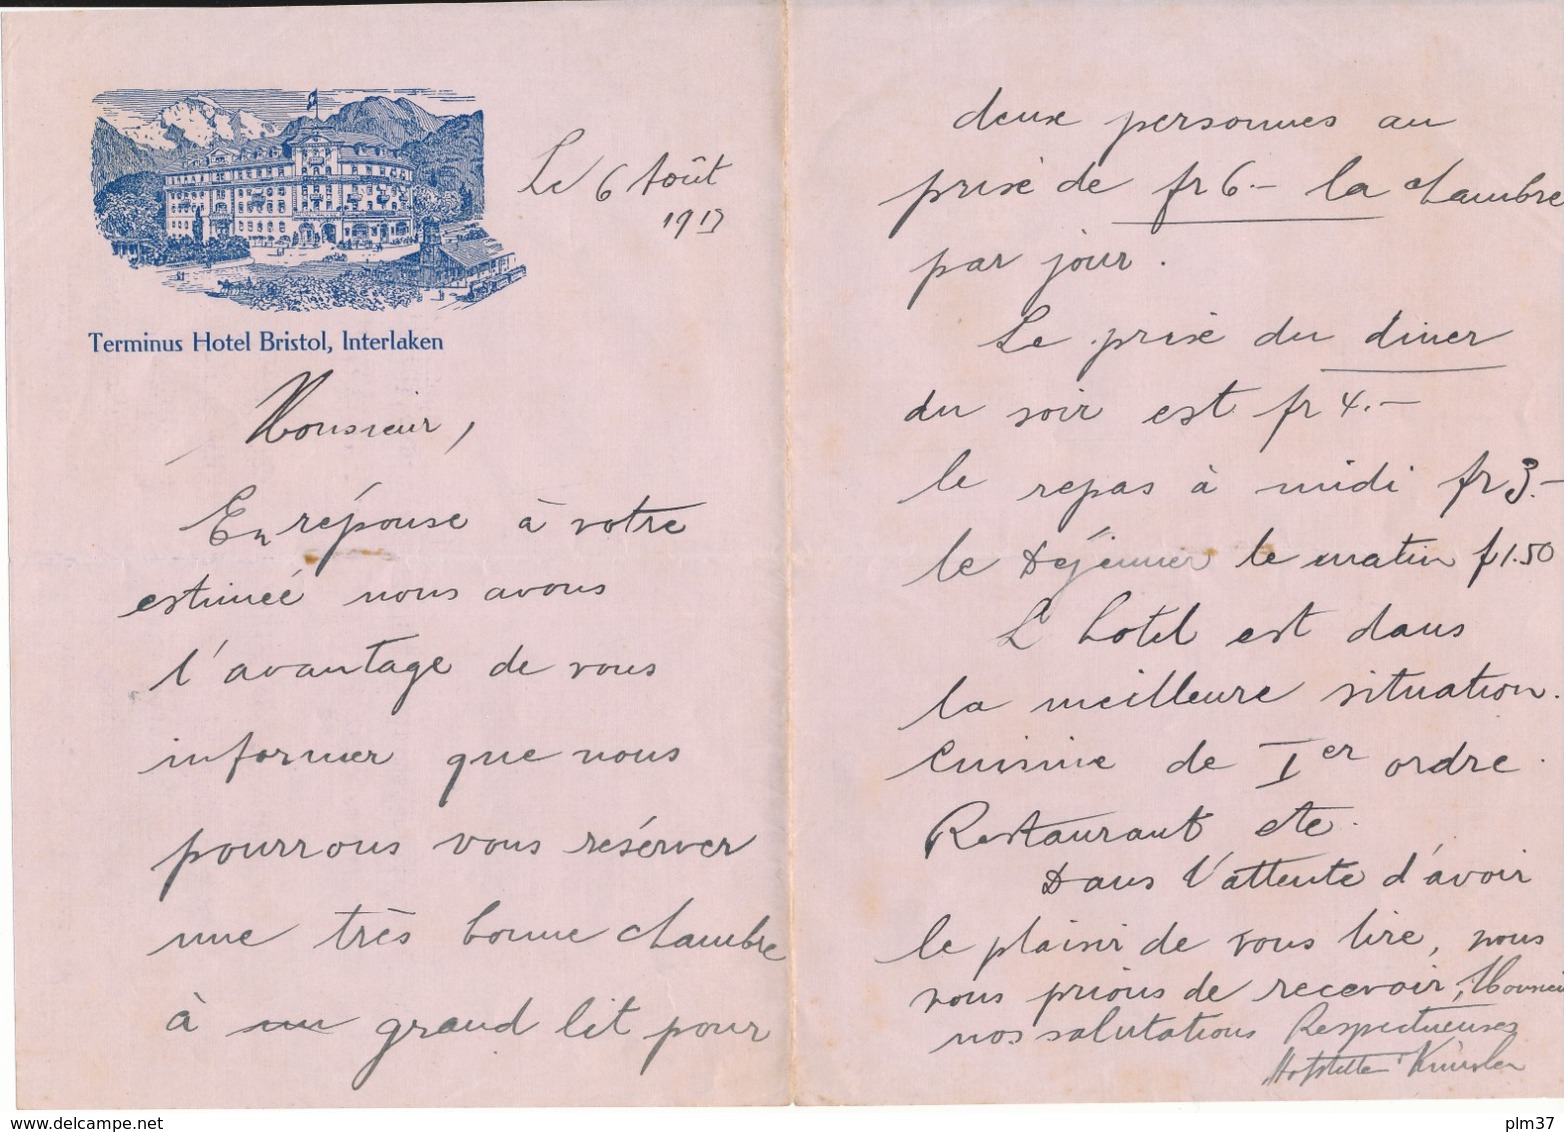 Le 6 Août
1913
Terminus Hotel Bristol, Interlaken
Monsieur,
En réponse à votre
estimée nous avons
l'avantage de vous
informer que nous
pourrons vous resérver
une très bonne chambre
à un grand lit pour
deux personnes au
prix de fr 6.- la chambre
par jour.
Le prix du diner
du soir est fr 4.-
le repas à midi fr 3.-
le Déjeuner le matin f 1.50
L'hotel est dans
la meilleure situation.
Cuisine de Ier ordre.
Restaurant etc.
Dans l'attente d'avoir
le plaisir de vous lire, nous
vous prions de recevoir, Monsieur
nos salutations Respectueuses
delcampe.net
plm37